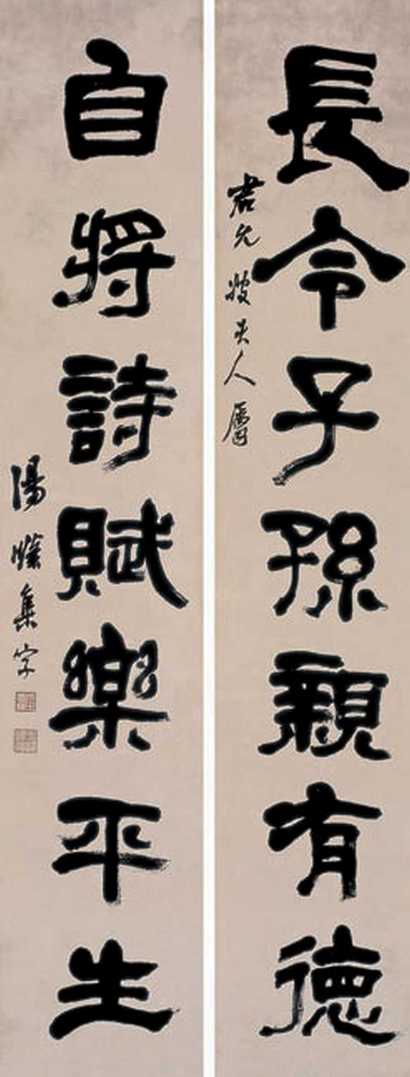 長令子孫親有德
君允姻丈人屬
自將詩賦樂平生
湯燧集字